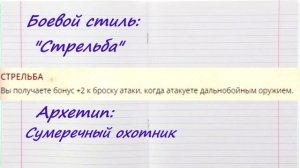 Боевой стиль:
"Стрельба"
СТРЕЛЬБА
Вы получаете бонус +2 к броску атаки, когда атакуете дальнобойным оружием.
Архетип:
Сумеречный охотник